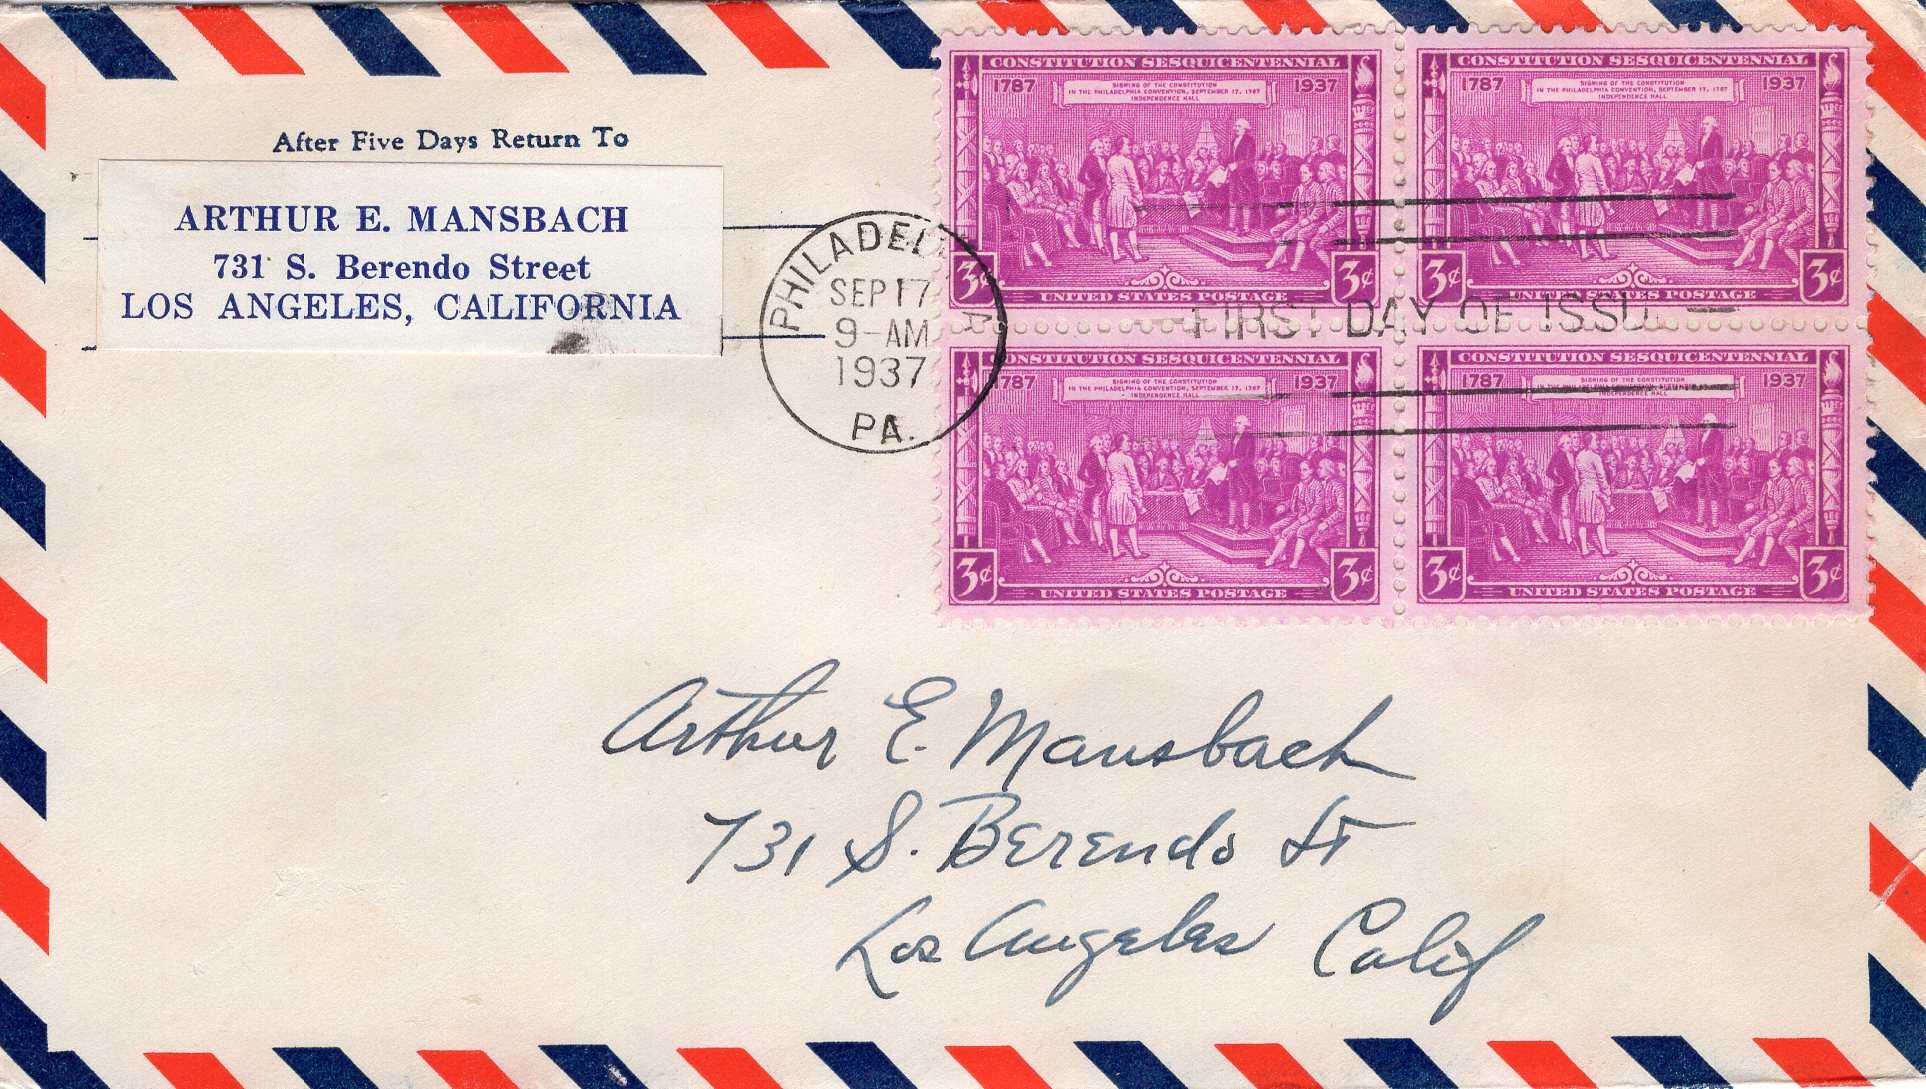 After Five Days Return To
ARTHUR E. MANSBACH
731 S. Berendo Street
LOS ANGELES, CALIFORNIA
PHILADEL A
SEP 17
9-AM
1937
PA.
FIRST DAY OF ISSU
CONSTITUTION SESQUICENTENNIAL
1787 1937
SIGNING OF THE CONSTITUTION
IN THE PHILADELPHIA CONVENTION, SEPTEMBER 17, 1787
INDEPENDENCE HALL
3¢ 3¢
UNITED STATES POSTAGE
CONSTITUTION SESQUICENTENNIAL
1787 1937
SIGNING OF THE CONSTITUTION
IN THE PHILADELPHIA CONVENTION, SEPTEMBER 17, 1787
INDEPENDENCE HALL
3¢ 3¢
UNITED STATES POSTAGE
CONSTITUTION SESQUICENTENNIAL
1787 1937
SIGNING OF THE CONSTITUTION
IN THE PHILADELPHIA CONVENTION, SEPTEMBER 17, 1787
INDEPENDENCE HALL
3¢ 3¢
UNITED STATES POSTAGE
CONSTITUTION SESQUICENTENNIAL
1787 1937
SIGNING OF THE CONSTITUTION
IN THE PHILADELPHIA CONVENTION, SEPTEMBER
INDEPENDENCE HALL
3¢ 3¢
UNITED STATES POSTAGE
Arthur E. Mansbach
731 S. Berendo St
Los Angeles Calif